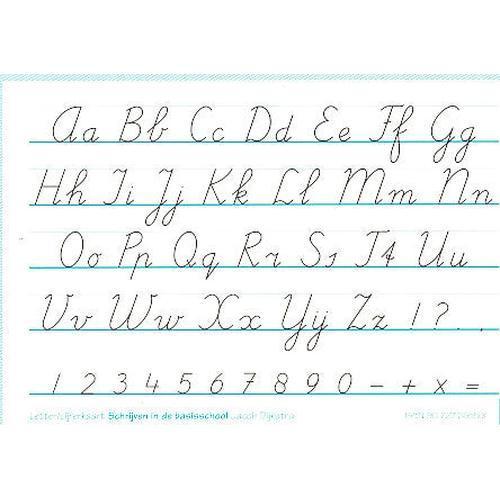 Aa Bb Cc Dd Ee Ff Gg
Hh Ii Jj Kk Ll Mm Nn
Oo Pp Qq Rr Ss Tt Uu
Vv Ww Xx Yy Zz ! ? . .
1 2 3 4 5 6 7 8 9 0 - + x =
Letter/cijferkaart Schrijven in de basisschool Jacob Dijkstra